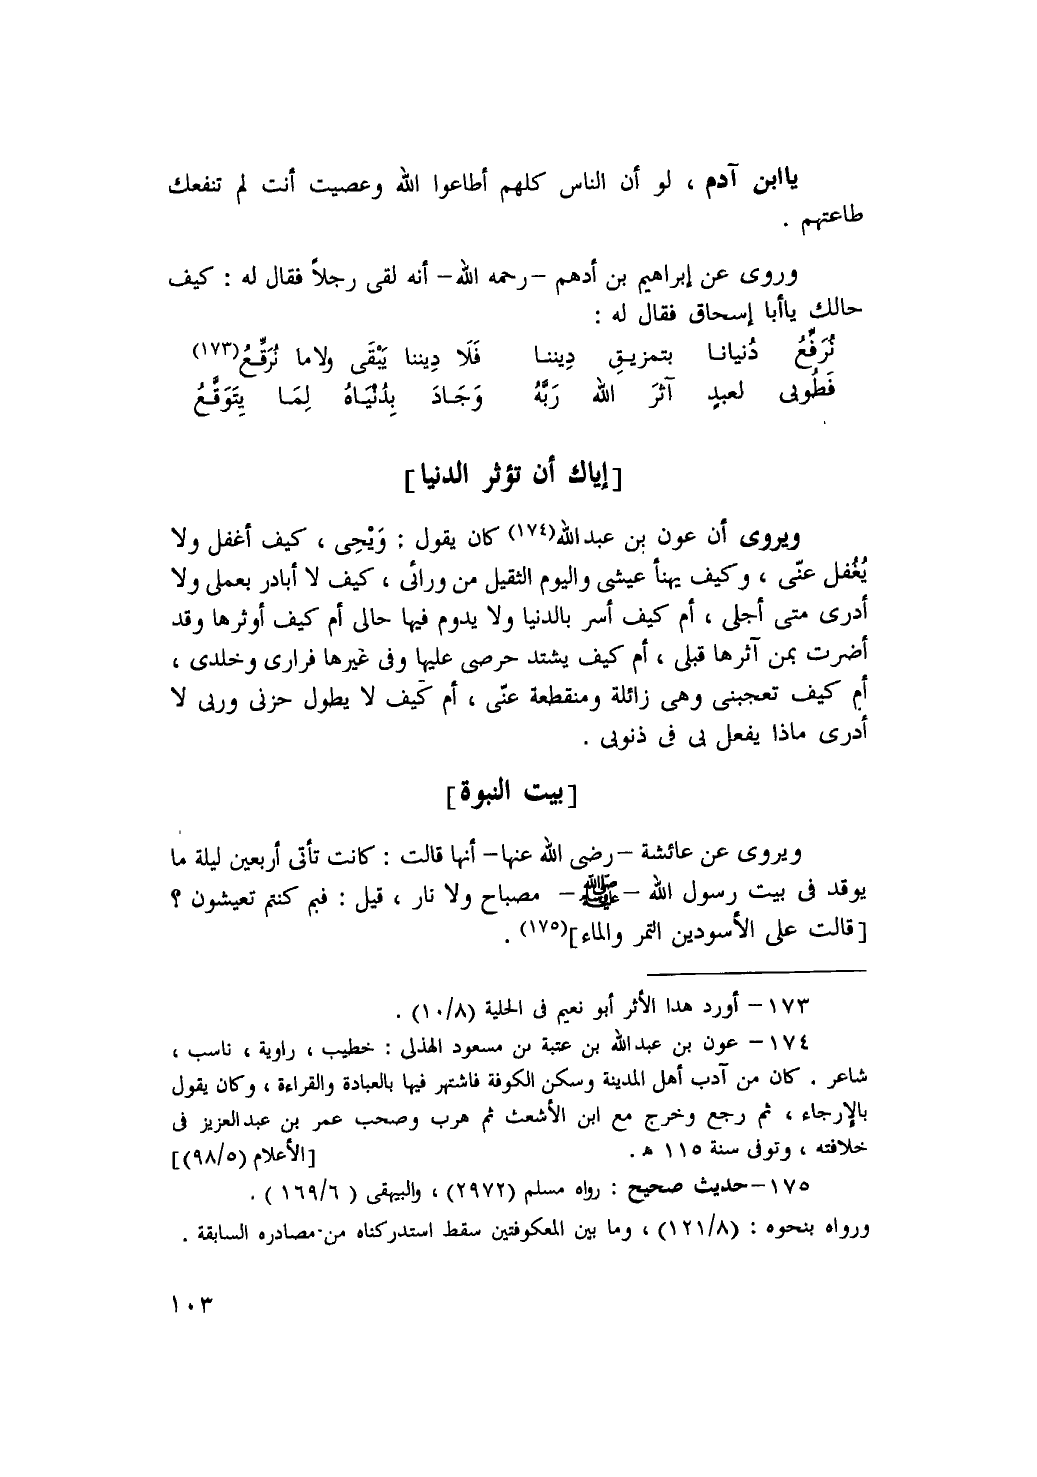 ياابن آدم ، لو أن الناس كلهم أطاعوا الله وعصيت أنت لم تنفعك
طاعتهم .
وروى عن إبراهيم بن أدهم –رحمه الله– أنه لقى رجلاً فقال له : كيف
حالك ياأبا إسحاق فقال له :
نُرَقِّعُ دُنيانـا بتمزيـقِ دِيننـا فَلَا دِيننا يَبْقَى ولاما نُرَقِّـعُ(١٧٣)
فَطُوبى لعبدٍ آثرَ الله رَبَّهُ وَجَـادَ بِدُنْيَـاهُ لِمَـا يِتَوَقَّـعُ
[إياك أن تؤثر الدنيا]
ويروى أن عون بن عبدالله(١٧٤) كان يقول : وَيْحِى ، كيف أغفل ولا
يُغْفل عنّى ، وكيف يهنأ عيشى واليوم الثقيل من ورائى ، كيف لا أبادر بعملى ولا
أدرى متى أجلى ، أم كيف أسر بالدنيا ولا يدوم فيها حالى أم كيف أوثرها وقد
أضرت بمن آثرها قبلى ، أم كيف يشتد حرصى عليها وفى غيرها فرارى وخلدى ،
أم كيف تعجبنى وهى زائلة ومنقطعة عنّى ، أم كيف لا يطول حزنى وربى لا
أدرى ماذا يفعل بى فى ذنوبى .
[بيت النبوة]
ويروى عن عائشة –رضى الله عنها– أنها قالت : كانت تأتى أربعين ليلة ما
يوقد فى بيت رسول الله –ﷺ– مصباح ولا نار ، قيل : فبم كنتم تعيشون ؟
[قالت على الأسودين التمر والماء](١٧٥) .
١٧٣– أورد هدا الأثر أبو نعيم فى الحلية (١٠/٨) .
١٧٤– عون بن عبدالله بن عتبة بن مسعود الهذلى : خطيب ، راوية ، ناسب ،
شاعر . كان من آدب أهل المدينة وسكن الكوفة فاشتهر فيها بالعبادة والقراءة ، وكان يقول
بالإرجاء ، ثم رجع وخرج مع ابن الأشعث ثم هرب وصحب عمر بن عبدالعزيز فى
خلافته ، وتوفى سنة ١١٥ هـ . [الأعلام (٩٨/٥)]
١٧٥–حديث صحيح : رواه مسلم (٢٩٧٢) ، والبيهقى ( ١٦٩/٦ ) .
ورواه بنحوه : (١٢١/٨) ، وما بين المعكوفتين سقط استدركناه من مصادره السابقة .
١٠٣